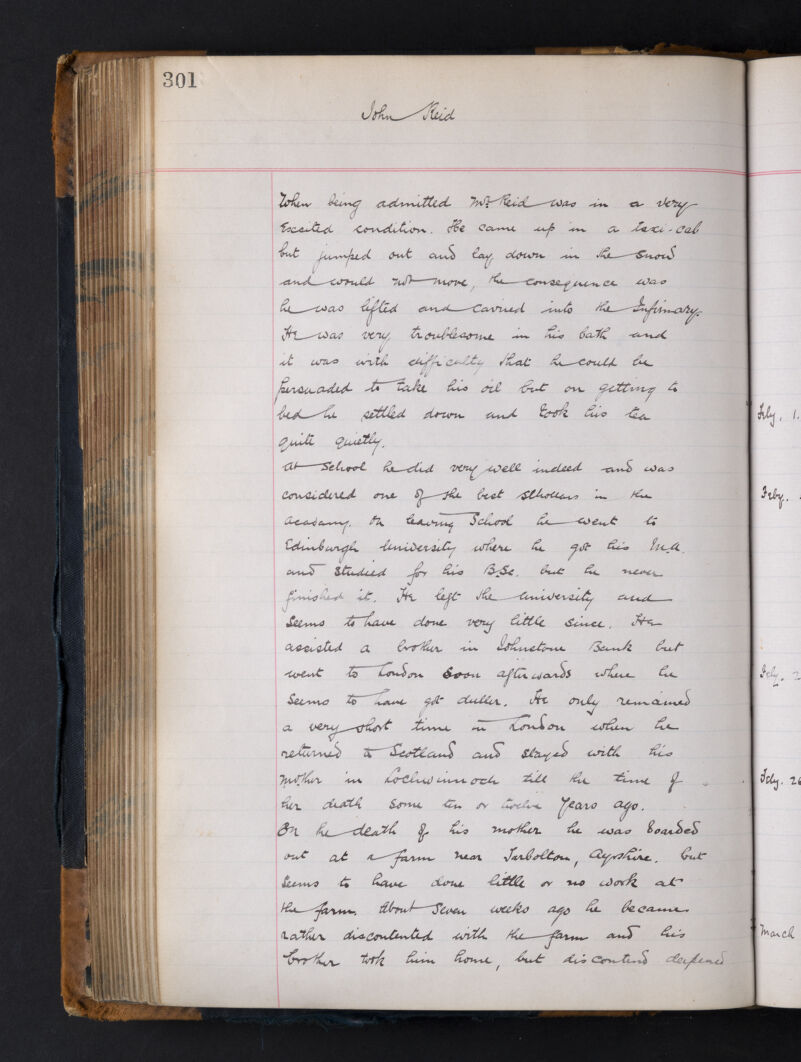 301
John Reid
When being admitted Mr. Reid was in a very
Excited condition. He came up in a taxi-cab
but jumped out and lay down in the snow
and would not move, the consequence was
he was lifted and carried into the Infirmary.
He was very troublesome in his bath and
it was with difficulty that he could be
persuaded to take his oil but on getting to
bed he settled down and took his tea
quite quietly.
At School he did very well indeed and was
considered one of the best scholars in the
academy. On leaving School he went to
Edinburgh University where he got his M.A.
and studied for his B.Sc. but he never
finished it. He left the University and
seems to have done very little since. He
assisted a brother in Johnstone Bank but
went to London soon afterwards where he
seems to have got duller. He only remained
a very short time in London when he
returned to Scotland and stayed with his
mother in Lochwinnoch till the time of
her death some ten or twelve years ago.
On he death of his mother he was boarded
out at a farm near Tarbolton, Ayrshire. but
seems to have done little or no work at
the farm. About seven weeks ago he became
rather discontented with the farm and his
brother took him home, but discontend deepened
Feby. 1.
Feby.
Feby. 2
Feby. 26
March